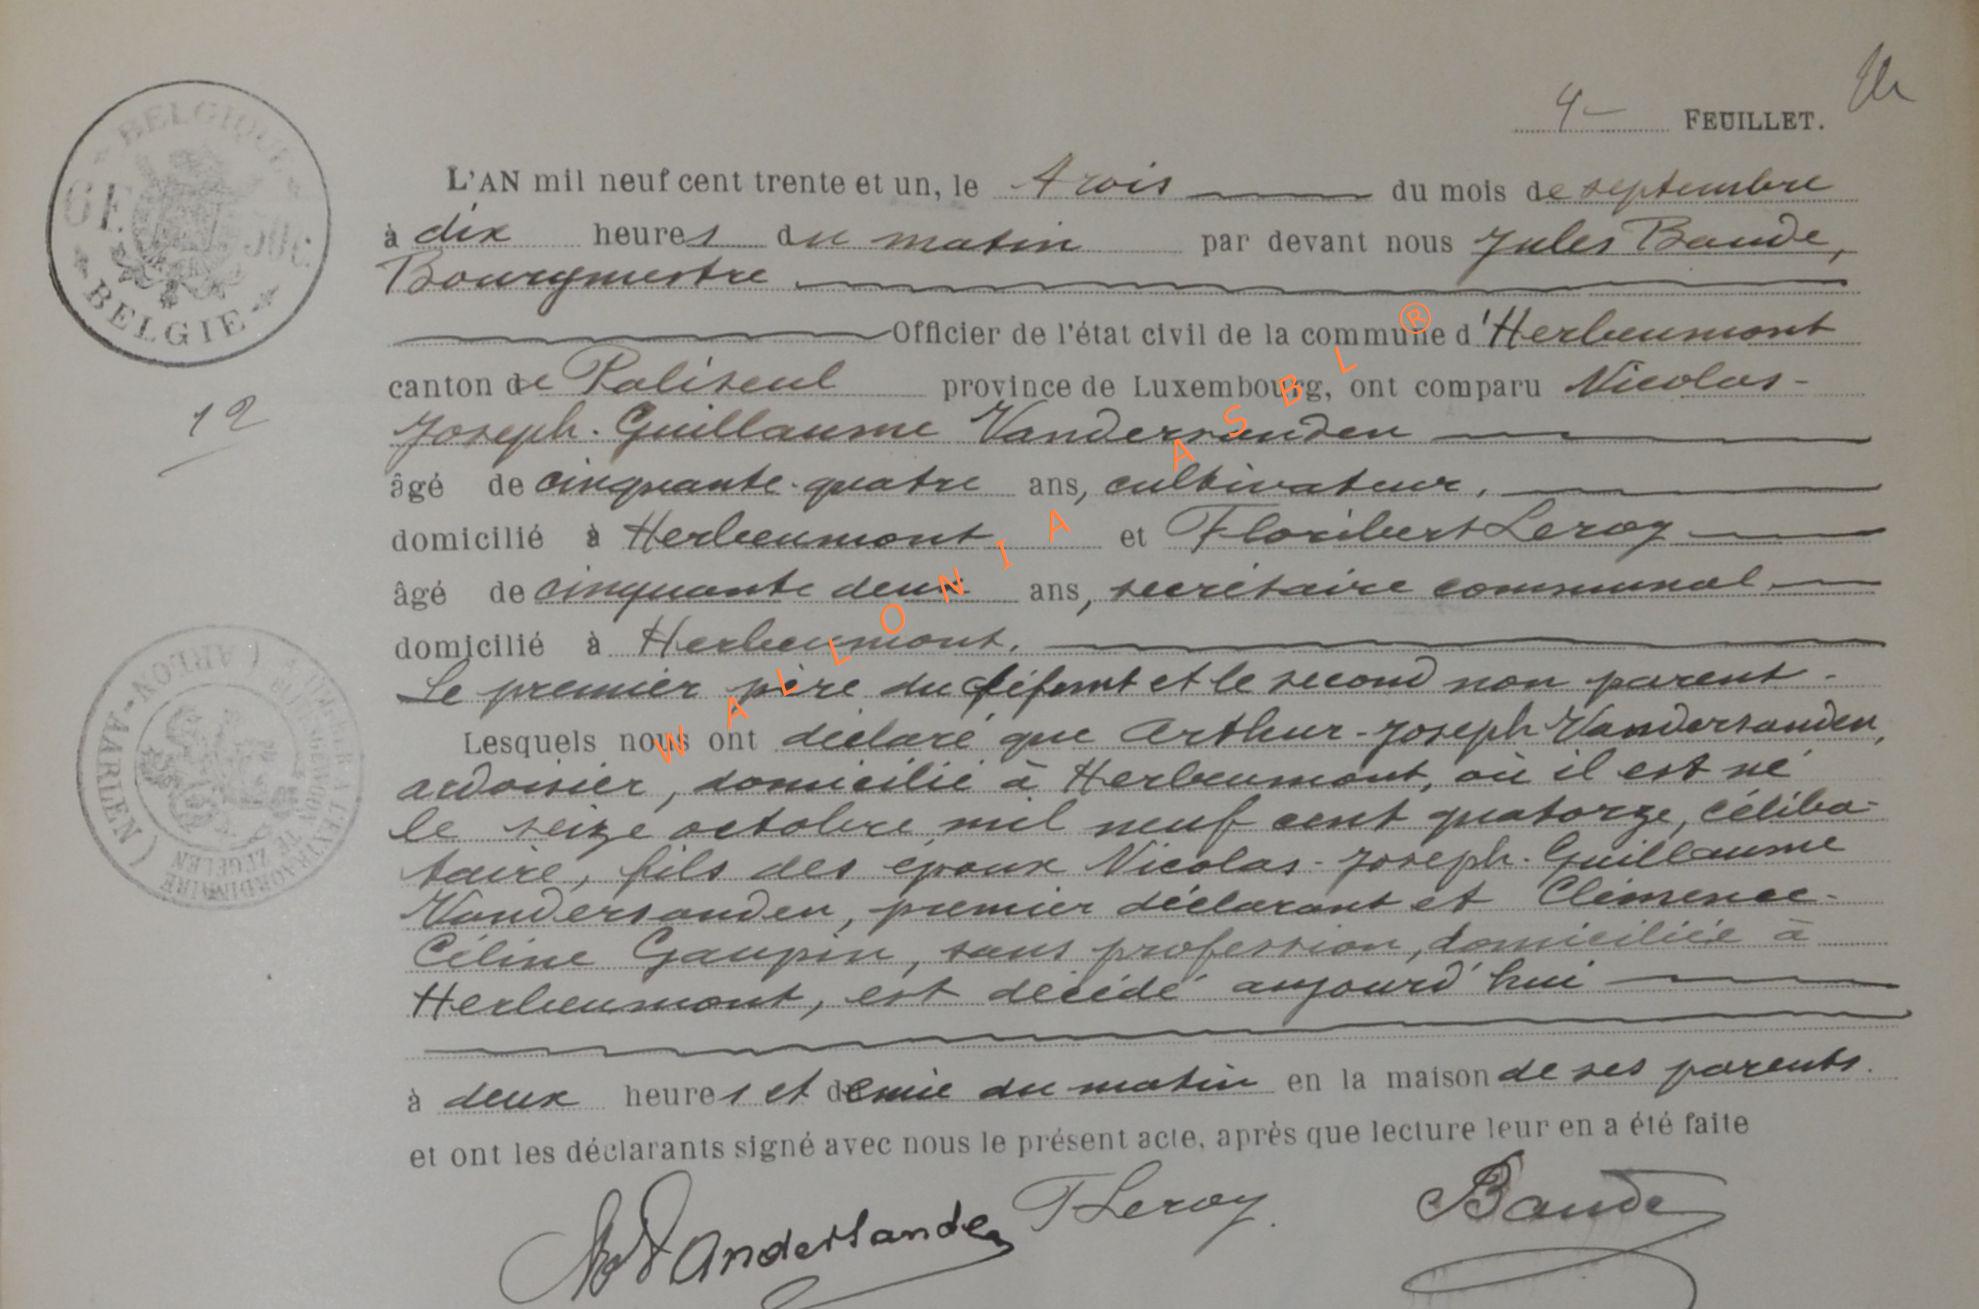 4 FEUILLET.
L'AN mil neuf cent trente et un, le trois du mois de septembre
à dix heures du matin par devant nous Jules Baude,
Bourgmestre
Officier de l'état civil de la commune d'Herbeumont
canton de Paliseul province de Luxembourg, ont comparu Nicolas-
Joseph-Guillaume Vandersanden
âgé de cinquante-quatre ans, cultivateur,
domicilié à Herbeumont et Floribert Leroy
âgé de cinquante deux ans, secrétaire communal
domicilié à Herbeumont.
Le premier père du défunt et le second non parent.
Lesquels nous ont déclaré que Arthur-Joseph Vandersanden,
ardoisier, domicilié à Herbeumont, où il est né
le seize octobre mil neuf cent quatorze, céliba-
taire, fils des époux Nicolas-Joseph-Guillaume
Vandersanden, premier déclarant et Clémence-
Céline Gaupin, sans profession, domiciliée à
Herbeumont, est décédé aujourd'hui
à deux heures et demie du matin en la maison de ses parents.
et ont les déclarants signé avec nous le présent acte, après que lecture leur en a été faite
Vandersanden FLeroy. Baude
BELGIQUE
6F. 50C
BELGIE
12
ARLON-AARLEN
TIMBRER A L'EXTRAORDINAIRE
BUITENGEWOON TE ZEGELEN
WALLONIA ASBL ®